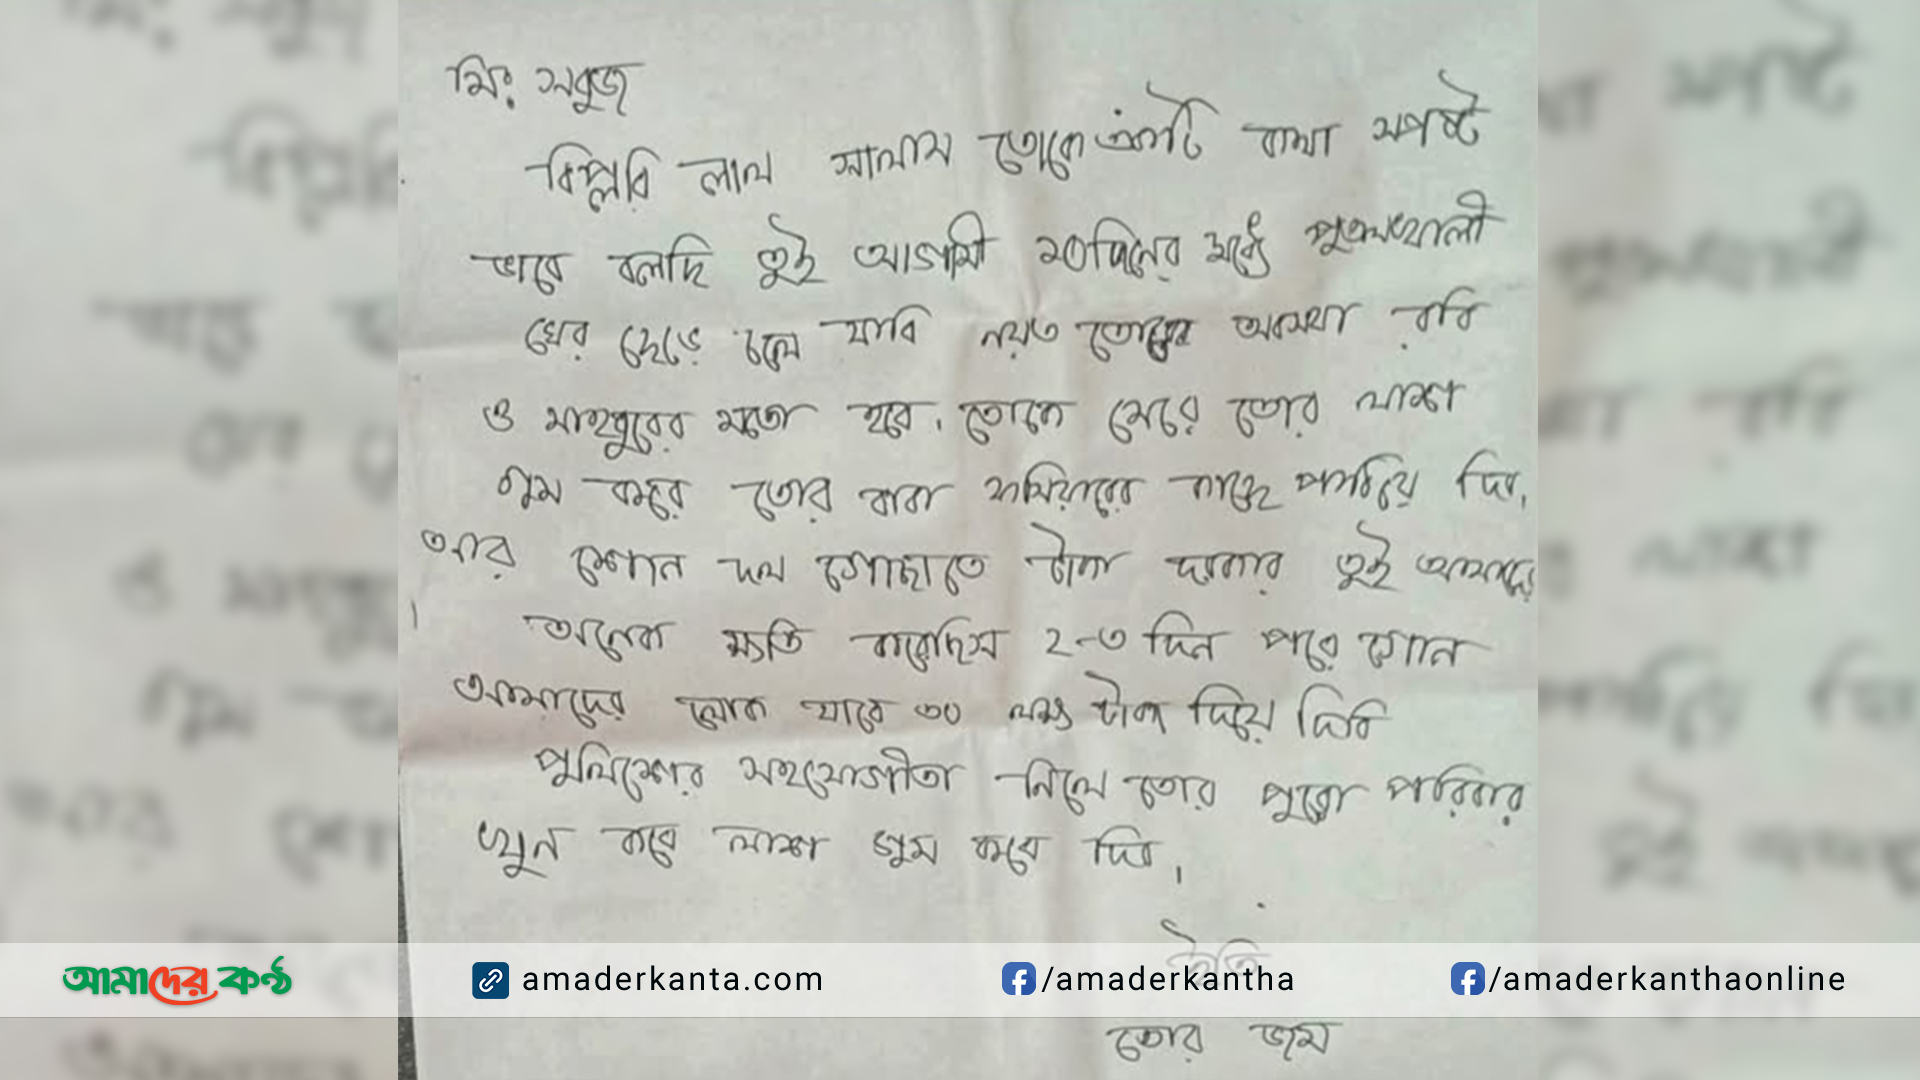 মি: সবুজ
বিপ্লবি লাল সালাম তোকে একটি কথা স্পষ্ট
ভাবে বলছি তুই আগামী দিনের মধ্যে
ঘের ছেড়ে চলে যাবি নয়ত তোদের অবসথা রবি
ও মতো হবে, তোকে মেরে তোর লাশ
গুম করে তোর বাবা কাছে পাঠিয়ে দিব,
আর শোন দল গোছাতে টাকা দরকার তুই আমাদের
অনেক ক্ষতি করেছিস ২-৩ দিন পরে
আমাদের লোক যাবে ৩০ লক্ষ টাকা দিয়ে দিবি
পুলিশের সহযোগীতা নিলে তোর পুরো পরিবার
খুন করে লাশ গুম করে দিব,
ইতি
আমাদের কণ্ঠ amaderkanta.com /amaderkantha /amaderkanthaonline
তোর জম